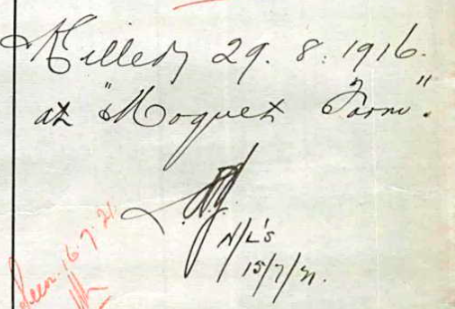 Killed 29. 8. 1916.
at "Moquet Farm".
N/L's
15/7/21.
Seen 16.7.21